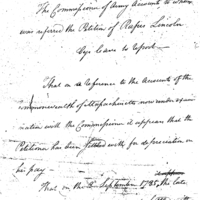 The Commissioner of Army Accounts to whom
was referred the Petition of Rufus Lincoln
begs leave to report
That on a reference to the Accounts of the
commonwealth of Massachusetts now under exami
nation with the Commissioner it appears that the
Petitioner has been settled with for depreciation on
his pay
That on the 2 September 1785, the late